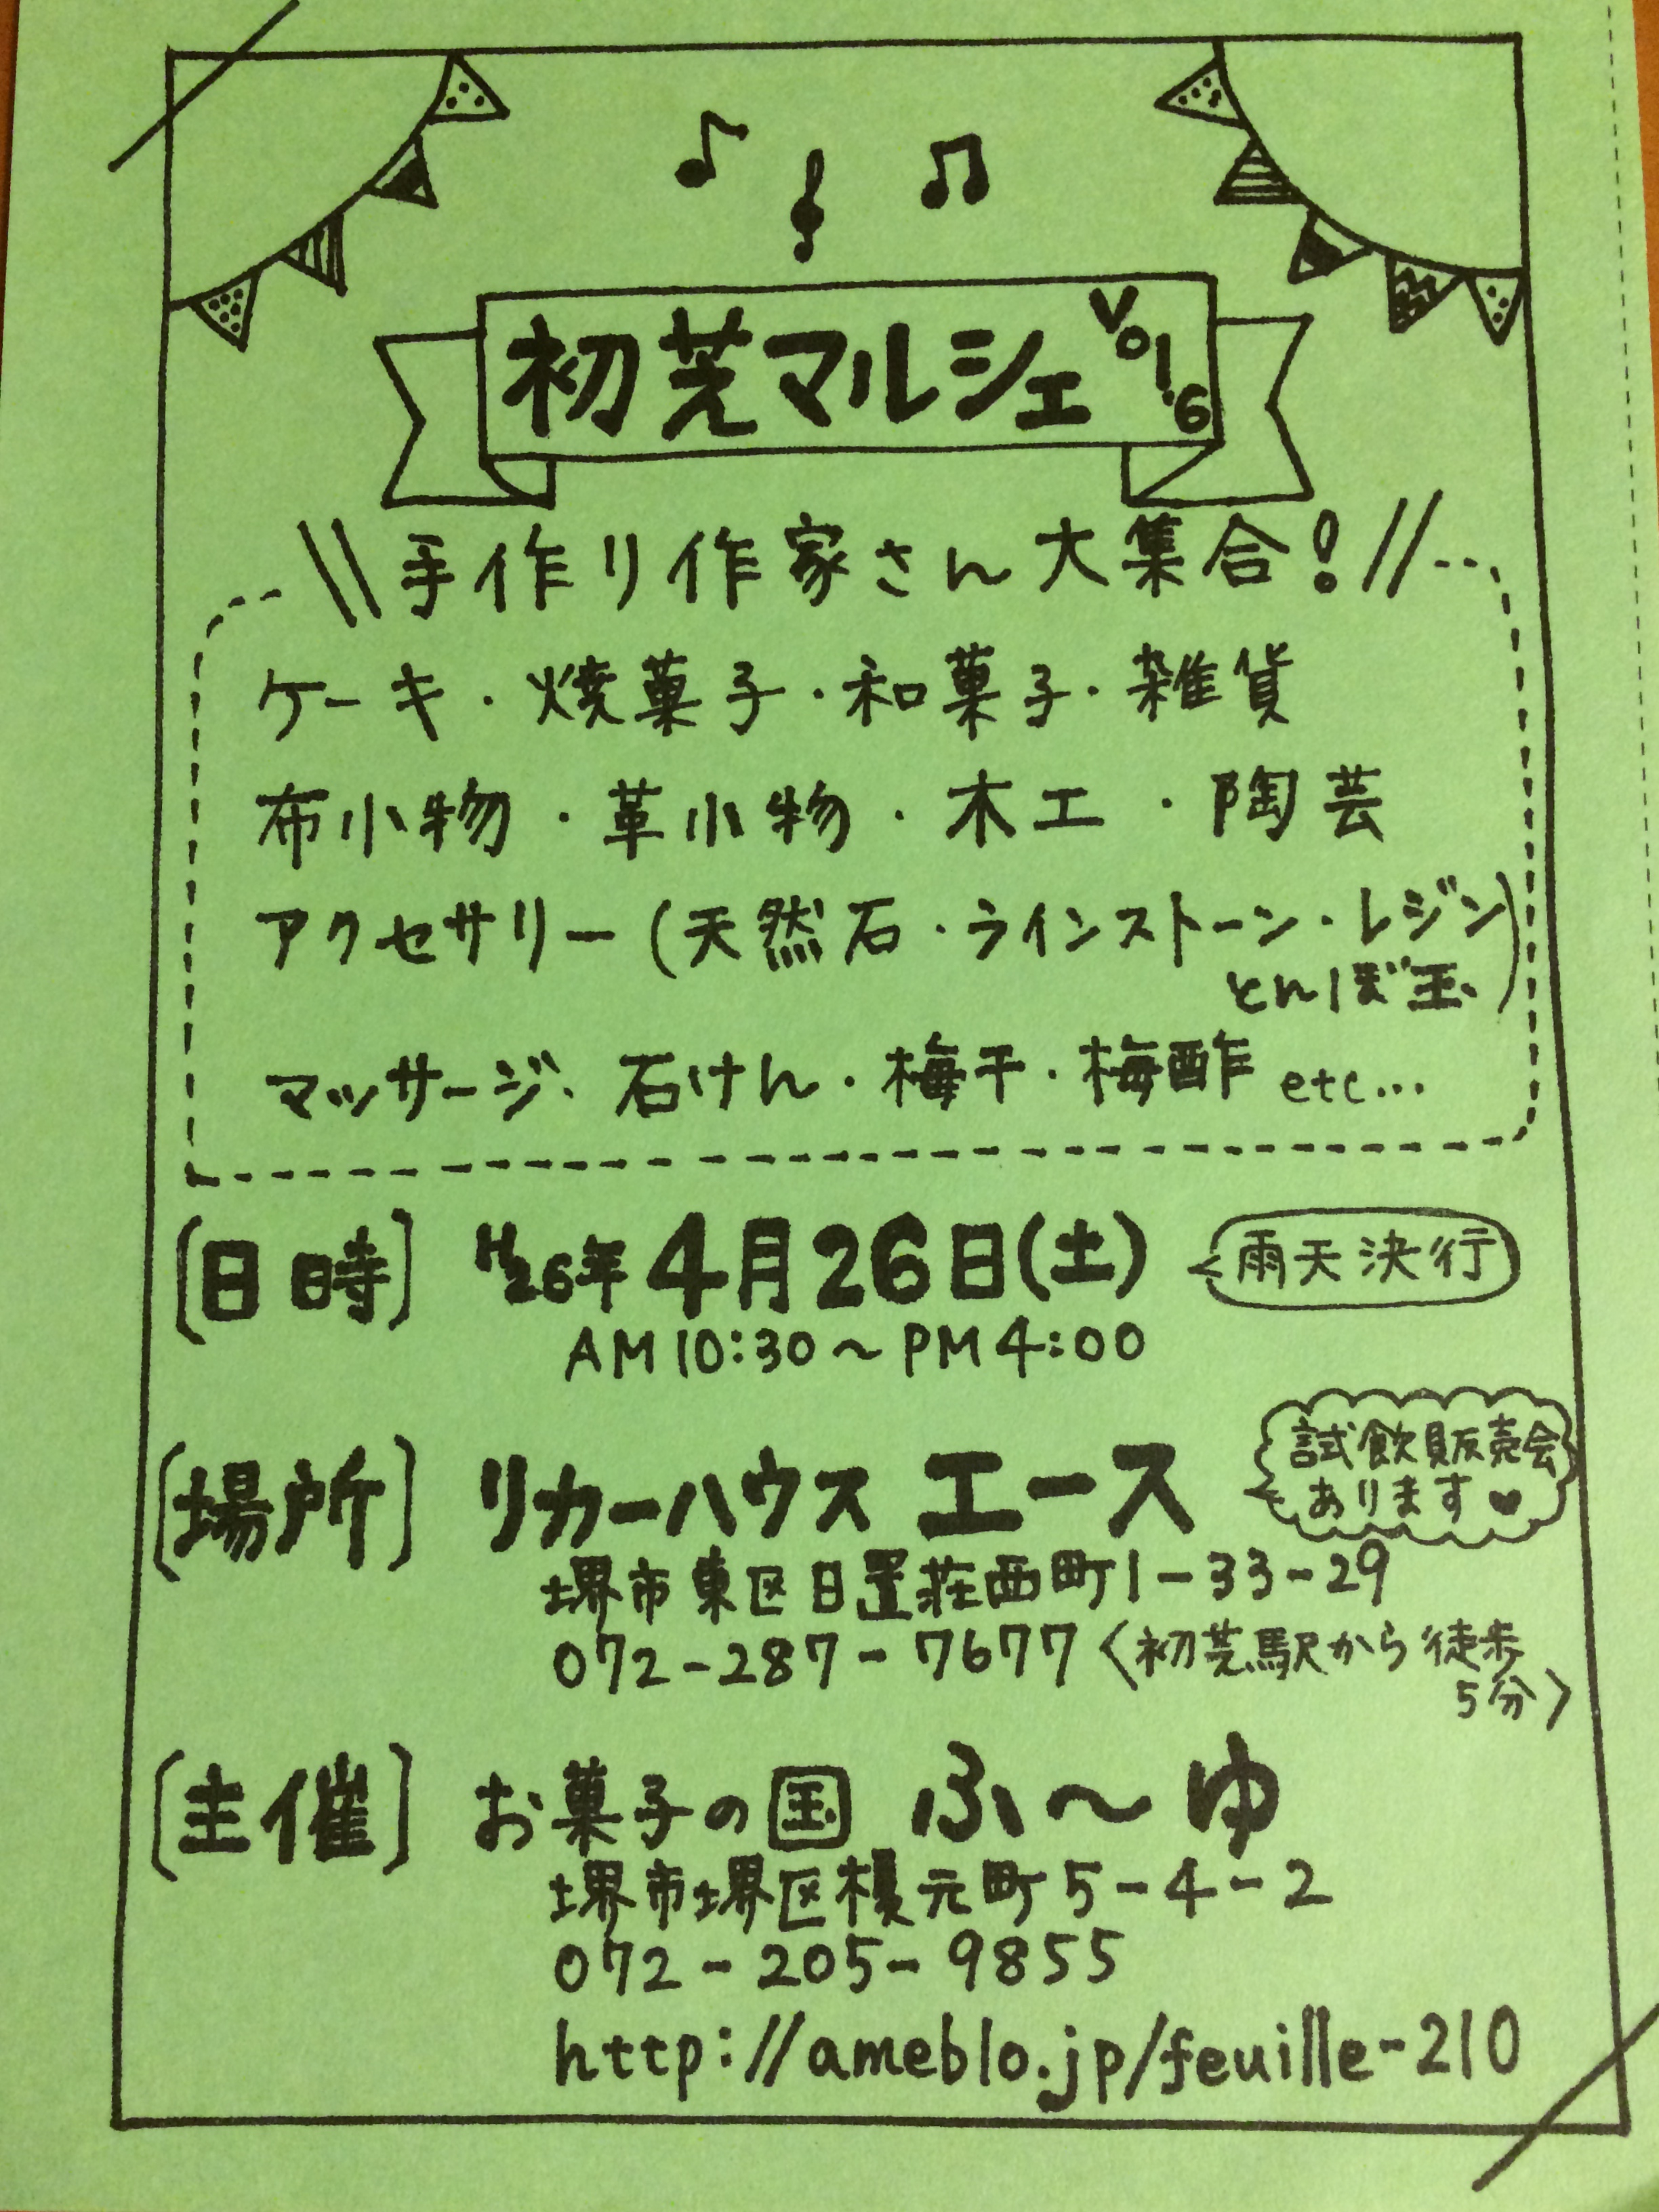 初芝マルシェ Vol.6
\\手作り作家さん大集合!//
ケーキ・焼菓子・和菓子・雑貨
布小物・革小物・木工・陶芸
アクセサリー(天然石・ラインストーン・レジン
とんぼ玉)
マッサージ、石けん・梅干・梅酢 etc...
[日時] H26年4月26日(土) 雨天決行
AM10:30～PM4:00
[場所] リカーハウス エース
試飲販売会
あります♥
堺市東区日置荘西町1-33-29
072-287-7677〈初芝駅から徒歩
5分〉
[主催] お菓子の国 ふ～ゆ
堺市堺区榎元町5-4-2
072-205-9855
http://ameblo.jp/feuille-210